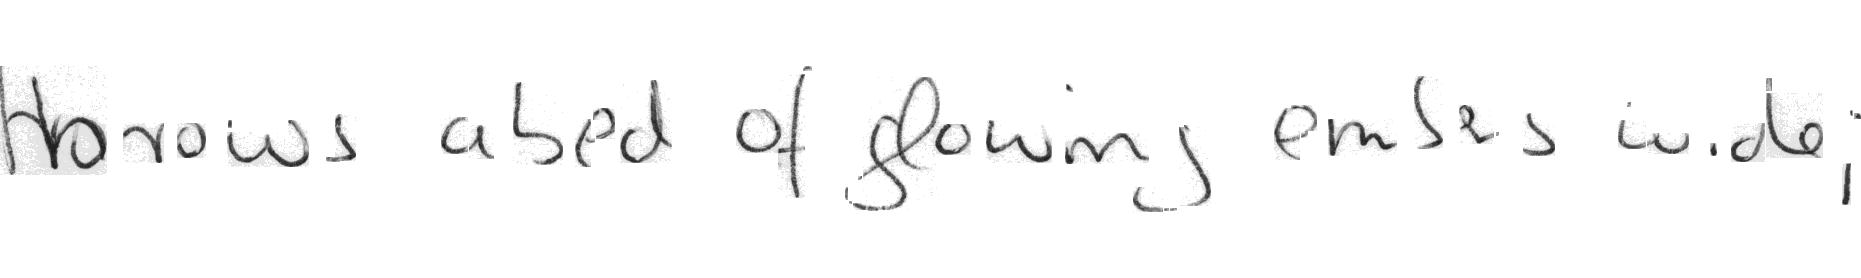 Horows abed of glowing embers wide;